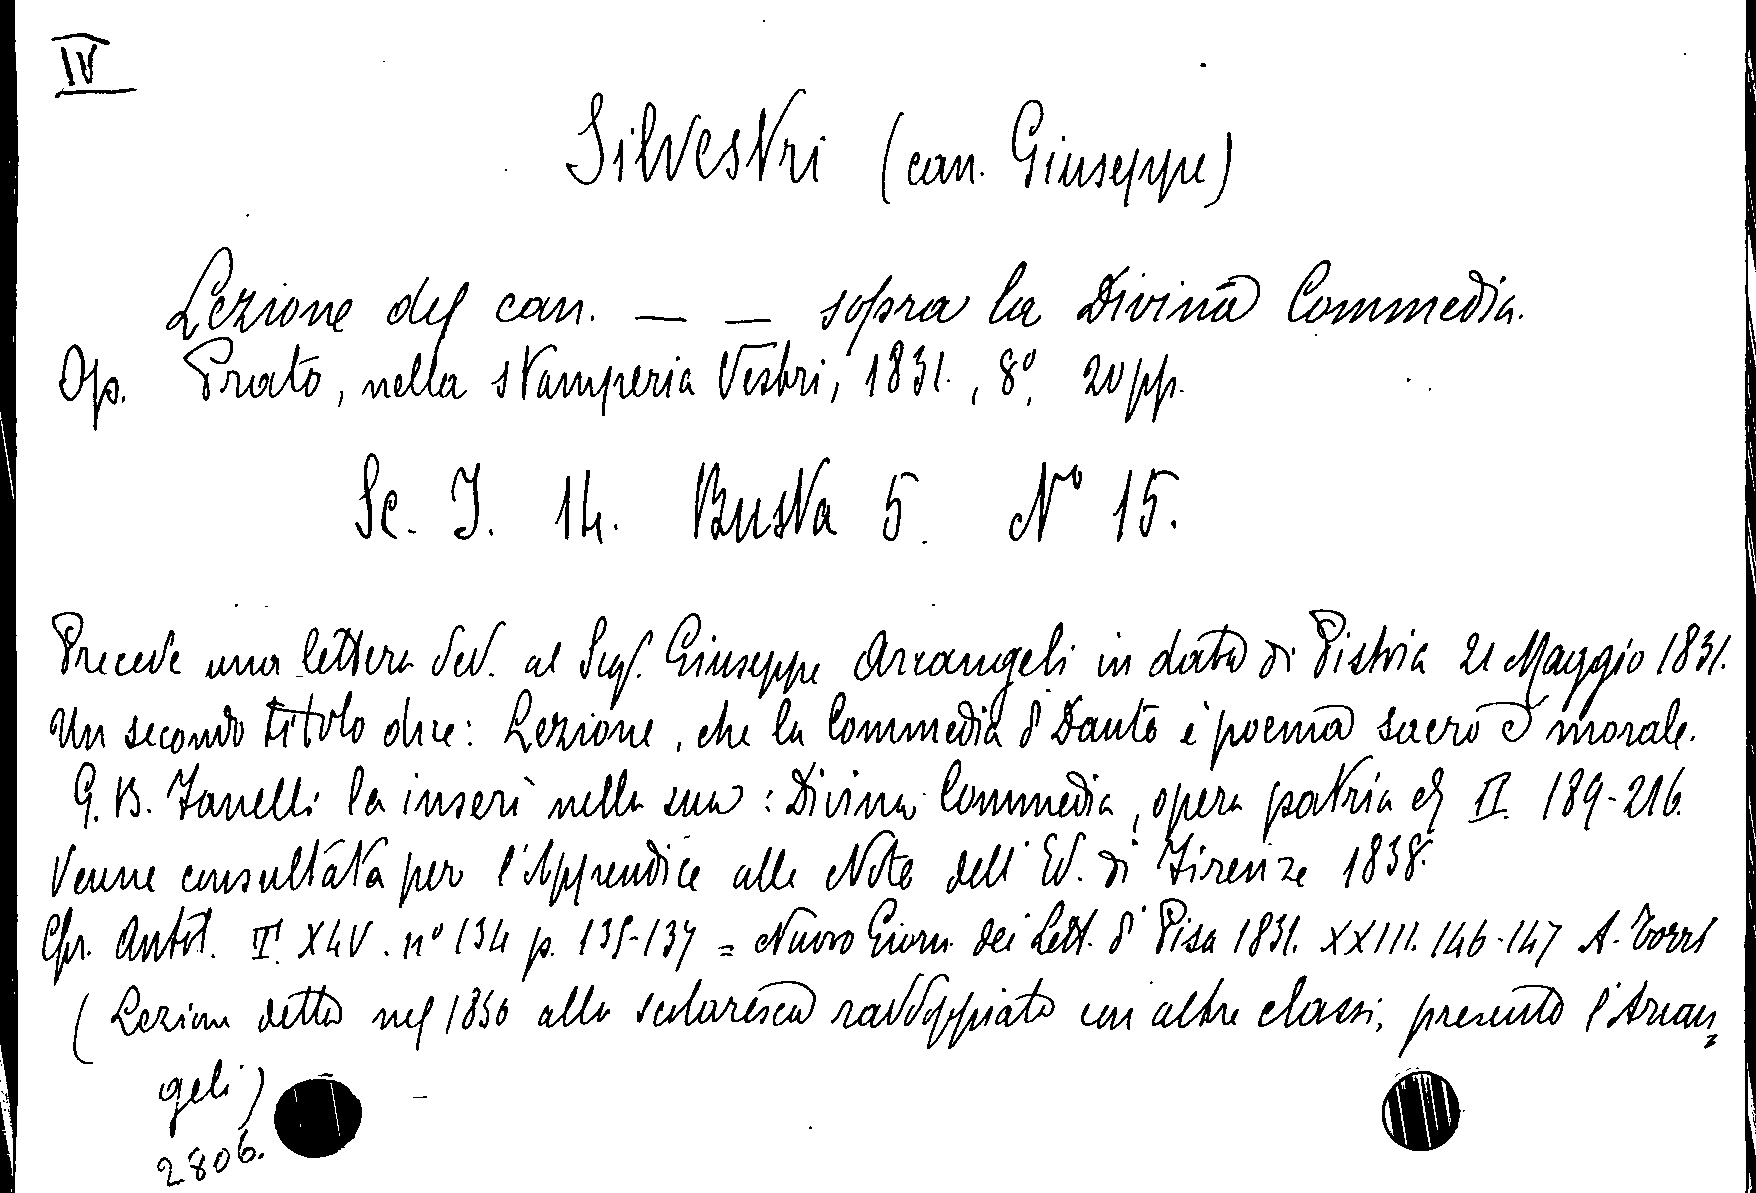 IV
Silvestri (can. Giuseppe)
Lezione del can. — — sopra la Divina Commedia.
Op. Prato, nella stamperia Vestri, 1831., 8º, 20 pp.
Sc. I. 14. Busta 5. Nº 15.
Precede una lettera ded. al Sig. Giuseppe Arcangeli in data di Pistoia 21 Maggio 1831.
Un secondo titolo dice: Lezione, che la Commedia di Dante è poema sacro e morale.
G. B. Fanelli la inserì nella sua: Divina Commedia, opera patria II. 189-216.
Venne consultata per l'Appendice alle Note dell' Ed. di Firenze 1838.
Cfr. Antol. T. XLV. nº 134 p. 135-137 = Nuovo Giorn. dei Lett. di Pisa 1831. XXIII. 146-147 A. Torri
(Lezion detta nel 1830 alla scolaresca raddoppiata con altre classi, presente l'Arcan=
geli)
2806.